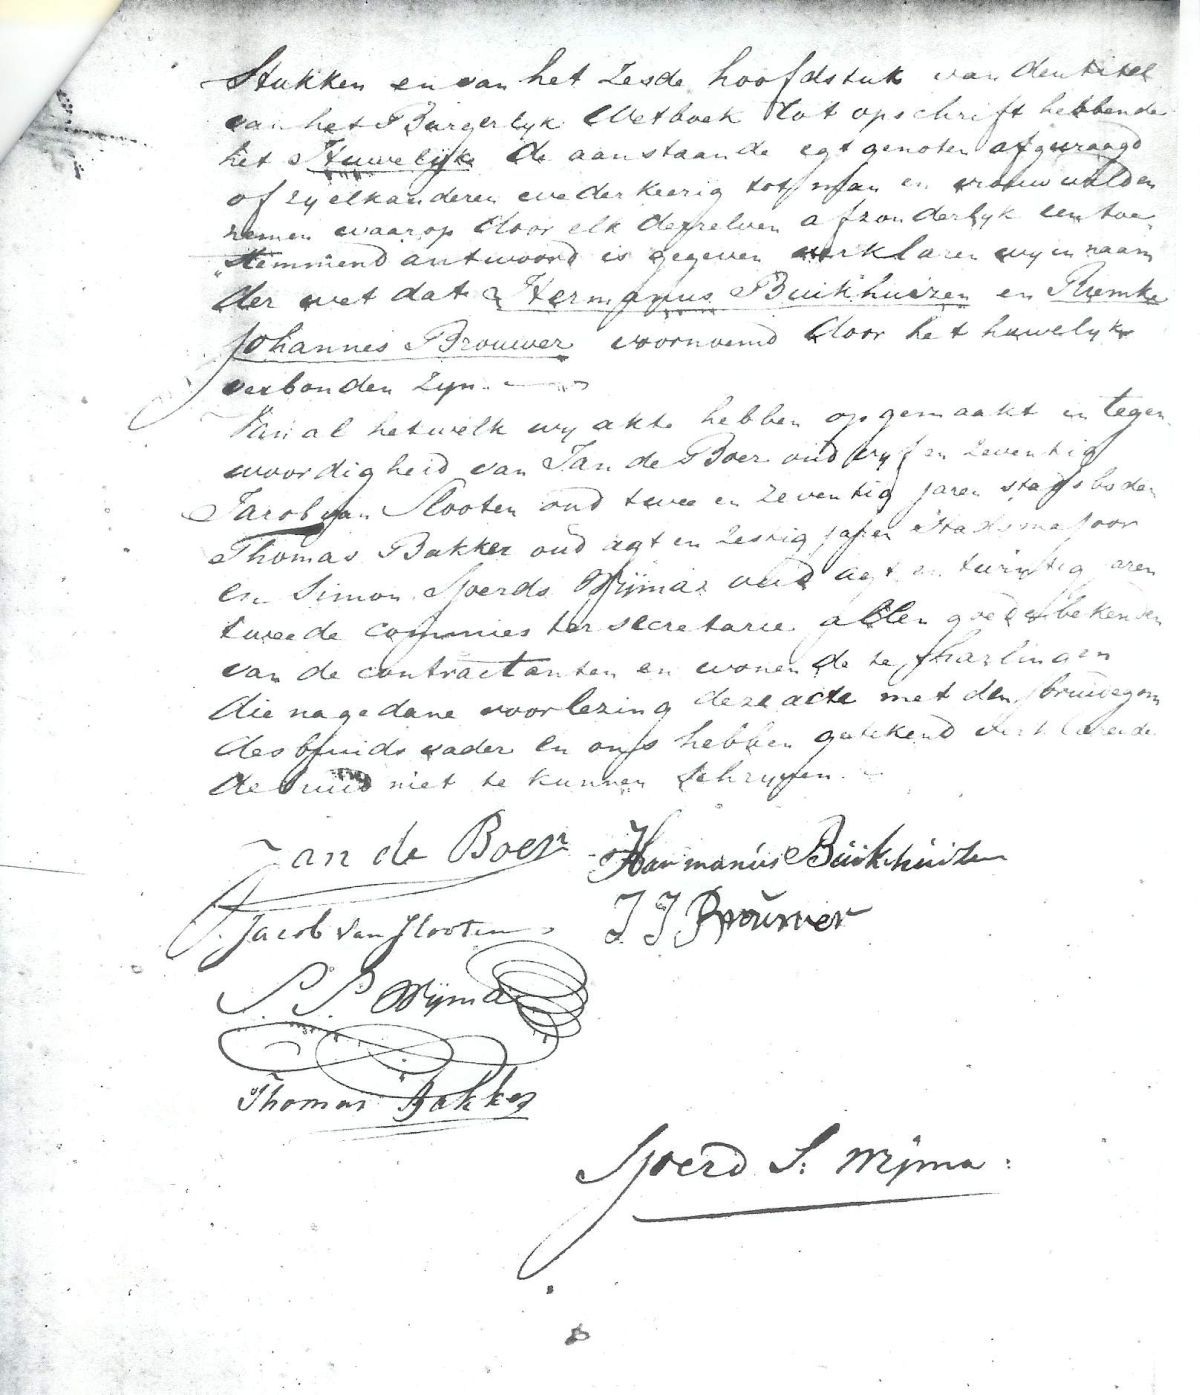 Stukken en van het Zesde hoofdstuk van den titel
van het Burgerlyk Wetboek tot opschrift hebbende
het Huwelijk de aanstaande egtgenoten afgevraagd
of zy elkanderen wederkeerig tot man en vrouw wilden
nemen waarop door elk derzelven afzonderlyk een toe„
„stemmend antwoord is gegeven verklaren wy in naam
der wet dat Hermanus Buikhuizen en Riemke
Johannes Brouwer voornoemd door het huwelyk
verbonden zyn.
Van al hetwelk wy akte hebben opgemaakt in tegen
woordigheid van Jan de Boer oud vyf en zeventig
Jacob van Slooten oud twee en zeventig jaren stadsboden
Thomas Bakker oud agt en zestig jaren Stadsmajoor
en Simon Sjoerds Wijma oud agt en twintig jaren
tweede commies ter secretarie allen goede bekenden
van de contractanten en wonende te Harlingen
die na gedane voorlezing deze acte met den bruidegom
des bruids vader en ons hebben getekend verklarende
de bruid niet te kunnen schryven.
Jan de Boer Harmanus Buikhuizen
Jacob van Slooten J J Brouwer
S. S. Wijma
Thomas Bakker
Sjoerd S. Wijma